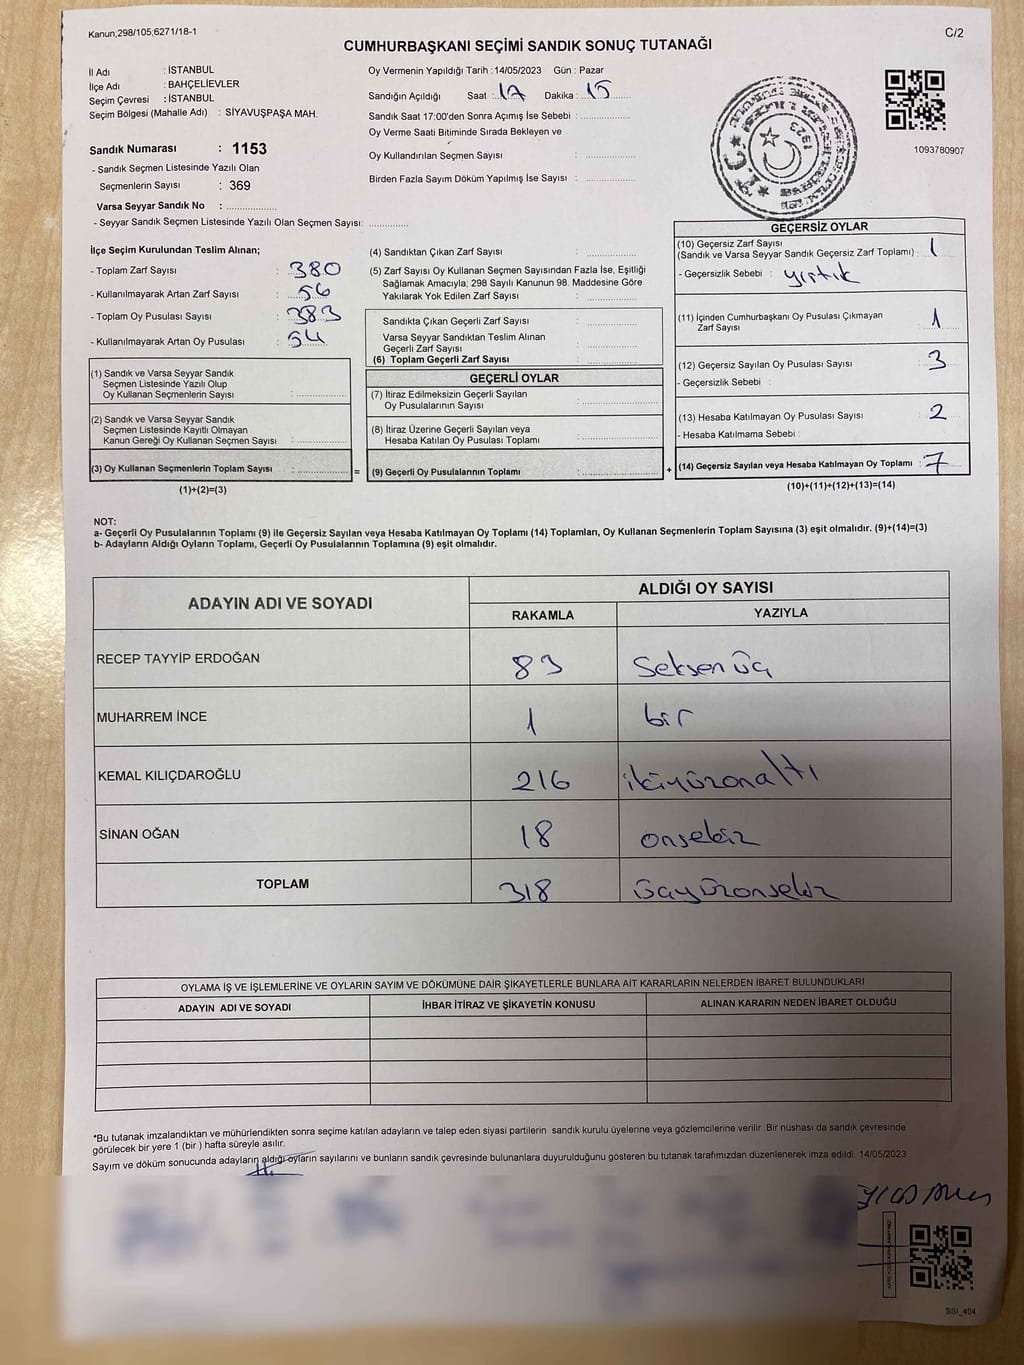 Kanun;298/105;6271/18-1
C/2
CUMHURBAŞKANI SEÇİMİ SANDIK SONUÇ TUTANAĞI
İl Adı : İSTANBUL
İlçe Adı : BAHÇELİEVLER
Seçim Çevresi : İSTANBUL
Seçim Bölgesi (Mahalle Adı) : SİYAVUŞPAŞA MAH.
Sandık Numarası : 1153
- Sandık Seçmen Listesinde Yazılı Olan
Seçmenlerin Sayısı : 369
Varsa Seyyar Sandık No :
- Seyyar Sandık Seçmen Listesinde Yazılı Olan Seçmen Sayısı:
Oy Vermenin Yapıldığı Tarih :14/05/2023 Gün : Pazar
Sandığın Açıldığı Saat : 17 Dakika : 15
Sandık Saat 17:00'den Sonra Açımış İse Sebebi :
Oy Verme Saati Bitiminde Sırada Bekleyen ve
Oy Kullandırılan Seçmen Sayısı :
Birden Fazla Sayım Döküm Yapılmış İse Sayısı :
T.C.
1923
1093780907
İlçe Seçim Kurulundan Teslim Alınan;
- Toplam Zarf Sayısı : 380
- Kullanılmayarak Artan Zarf Sayısı : 56
- Toplam Oy Pusulası Sayısı : 383
- Kullanılmayarak Artan Oy Pusulası : 54
(1) Sandık ve Varsa Seyyar Sandık
Seçmen Listesinde Yazılı Olup
Oy Kullanan Seçmenlerin Sayısı :
(2) Sandık ve Varsa Seyyar Sandık
Seçmen Listesinde Kayıtlı Olmayan
Kanun Gereği Oy Kullanan Seçmen Sayısı :
(3) Oy Kullanan Seçmenlerin Toplam Sayısı : =
(1)+(2)=(3)
(4) Sandıktan Çıkan Zarf Sayısı :
(5) Zarf Sayısı Oy Kullanan Seçmen Sayısından Fazla İse, Eşitliği
Sağlamak Amacıyla; 298 Sayılı Kanunun 98. Maddesine Göre
Yakılarak Yok Edilen Zarf Sayısı :
Sandıkta Çıkan Geçerli Zarf Sayısı :
Varsa Seyyar Sandıktan Teslim Alınan
Geçerli Zarf Sayısı :
(6) Toplam Geçerli Zarf Sayısı :
GEÇERLİ OYLAR
(7) İtiraz Edilmeksizin Geçerli Sayılan
Oy Pusulalarının Sayısı :
(8) İtiraz Üzerine Geçerli Sayılan veya
Hesaba Katılan Oy Pusulası Toplamı :
(9) Geçerli Oy Pusulalarının Toplamı : +
GEÇERSİZ OYLAR
(10) Geçersiz Zarf Sayısı
(Sandık ve Varsa Seyyar Sandık Geçersiz Zarf Toplamı) : 1
- Geçersizlik Sebebi : yırtık
(11) İçinden Cumhurbaşkanı Oy Pusulası Çıkmayan
Zarf Sayısı : 1
(12) Geçersiz Sayılan Oy Pusulası Sayısı : 3
- Geçersizlik Sebebi :
(13) Hesaba Katılmayan Oy Pusulası Sayısı : 2
- Hesaba Katılmama Sebebi :
(14) Geçersiz Sayılan veya Hesaba Katılmayan Oy Toplamı : 7
(10)+(11)+(12)+(13)=(14)
NOT:
a- Geçerli Oy Pusulalarının Toplamı (9) ile Geçersiz Sayılan veya Hesaba Katılmayan Oy Toplamı (14) Toplamları, Oy Kullanan Seçmenlerin Toplam Sayısına (3) eşit olmalıdır. (9)+(14)=(3)
b- Adayların Aldığı Oyların Toplamı, Geçerli Oy Pusulalarının Toplamına (9) eşit olmalıdır.
ADAYIN ADI VE SOYADI
ALDIĞI OY SAYISI
RAKAMLA YAZIYLA
RECEP TAYYİP ERDOĞAN 83 Seksen üç
MUHARREM İNCE 1 bir
KEMAL KILIÇDAROĞLU 216 ikiyüzonaltı
SİNAN OĞAN 18 onsekiz
TOPLAM 318 üçyüzonsekiz
OYLAMA İŞ VE İŞLEMLERİNE VE OYLARIN SAYIM VE DÖKÜMÜNE DAİR ŞİKAYETLERLE BUNLARA AİT KARARLARIN NELERDEN İBARET BULUNDUKLARI
ADAYIN ADI VE SOYADI İHBAR İTİRAZ VE ŞİKAYETİN KONUSU ALINAN KARARIN NEDEN İBARET OLDUĞU
*Bu tutanak imzalandıktan ve mühürlendikten sonra seçime katılan adayların ve talep eden siyasi partilerin sandık kurulu üyelerine veya gözlemcilerine verilir. Bir nüshası da sandık çevresinde
görülecek bir yere 1 (bir ) hafta süreyle asılır.
Sayım ve döküm sonucunda adayların aldığı oyların sayılarını ve bunların sandık çevresinde bulunanlara duyurulduğunu gösteren bu tutanak tarafımızdan düzenlenerek imza edildi. 14/05/2023
SBI_404